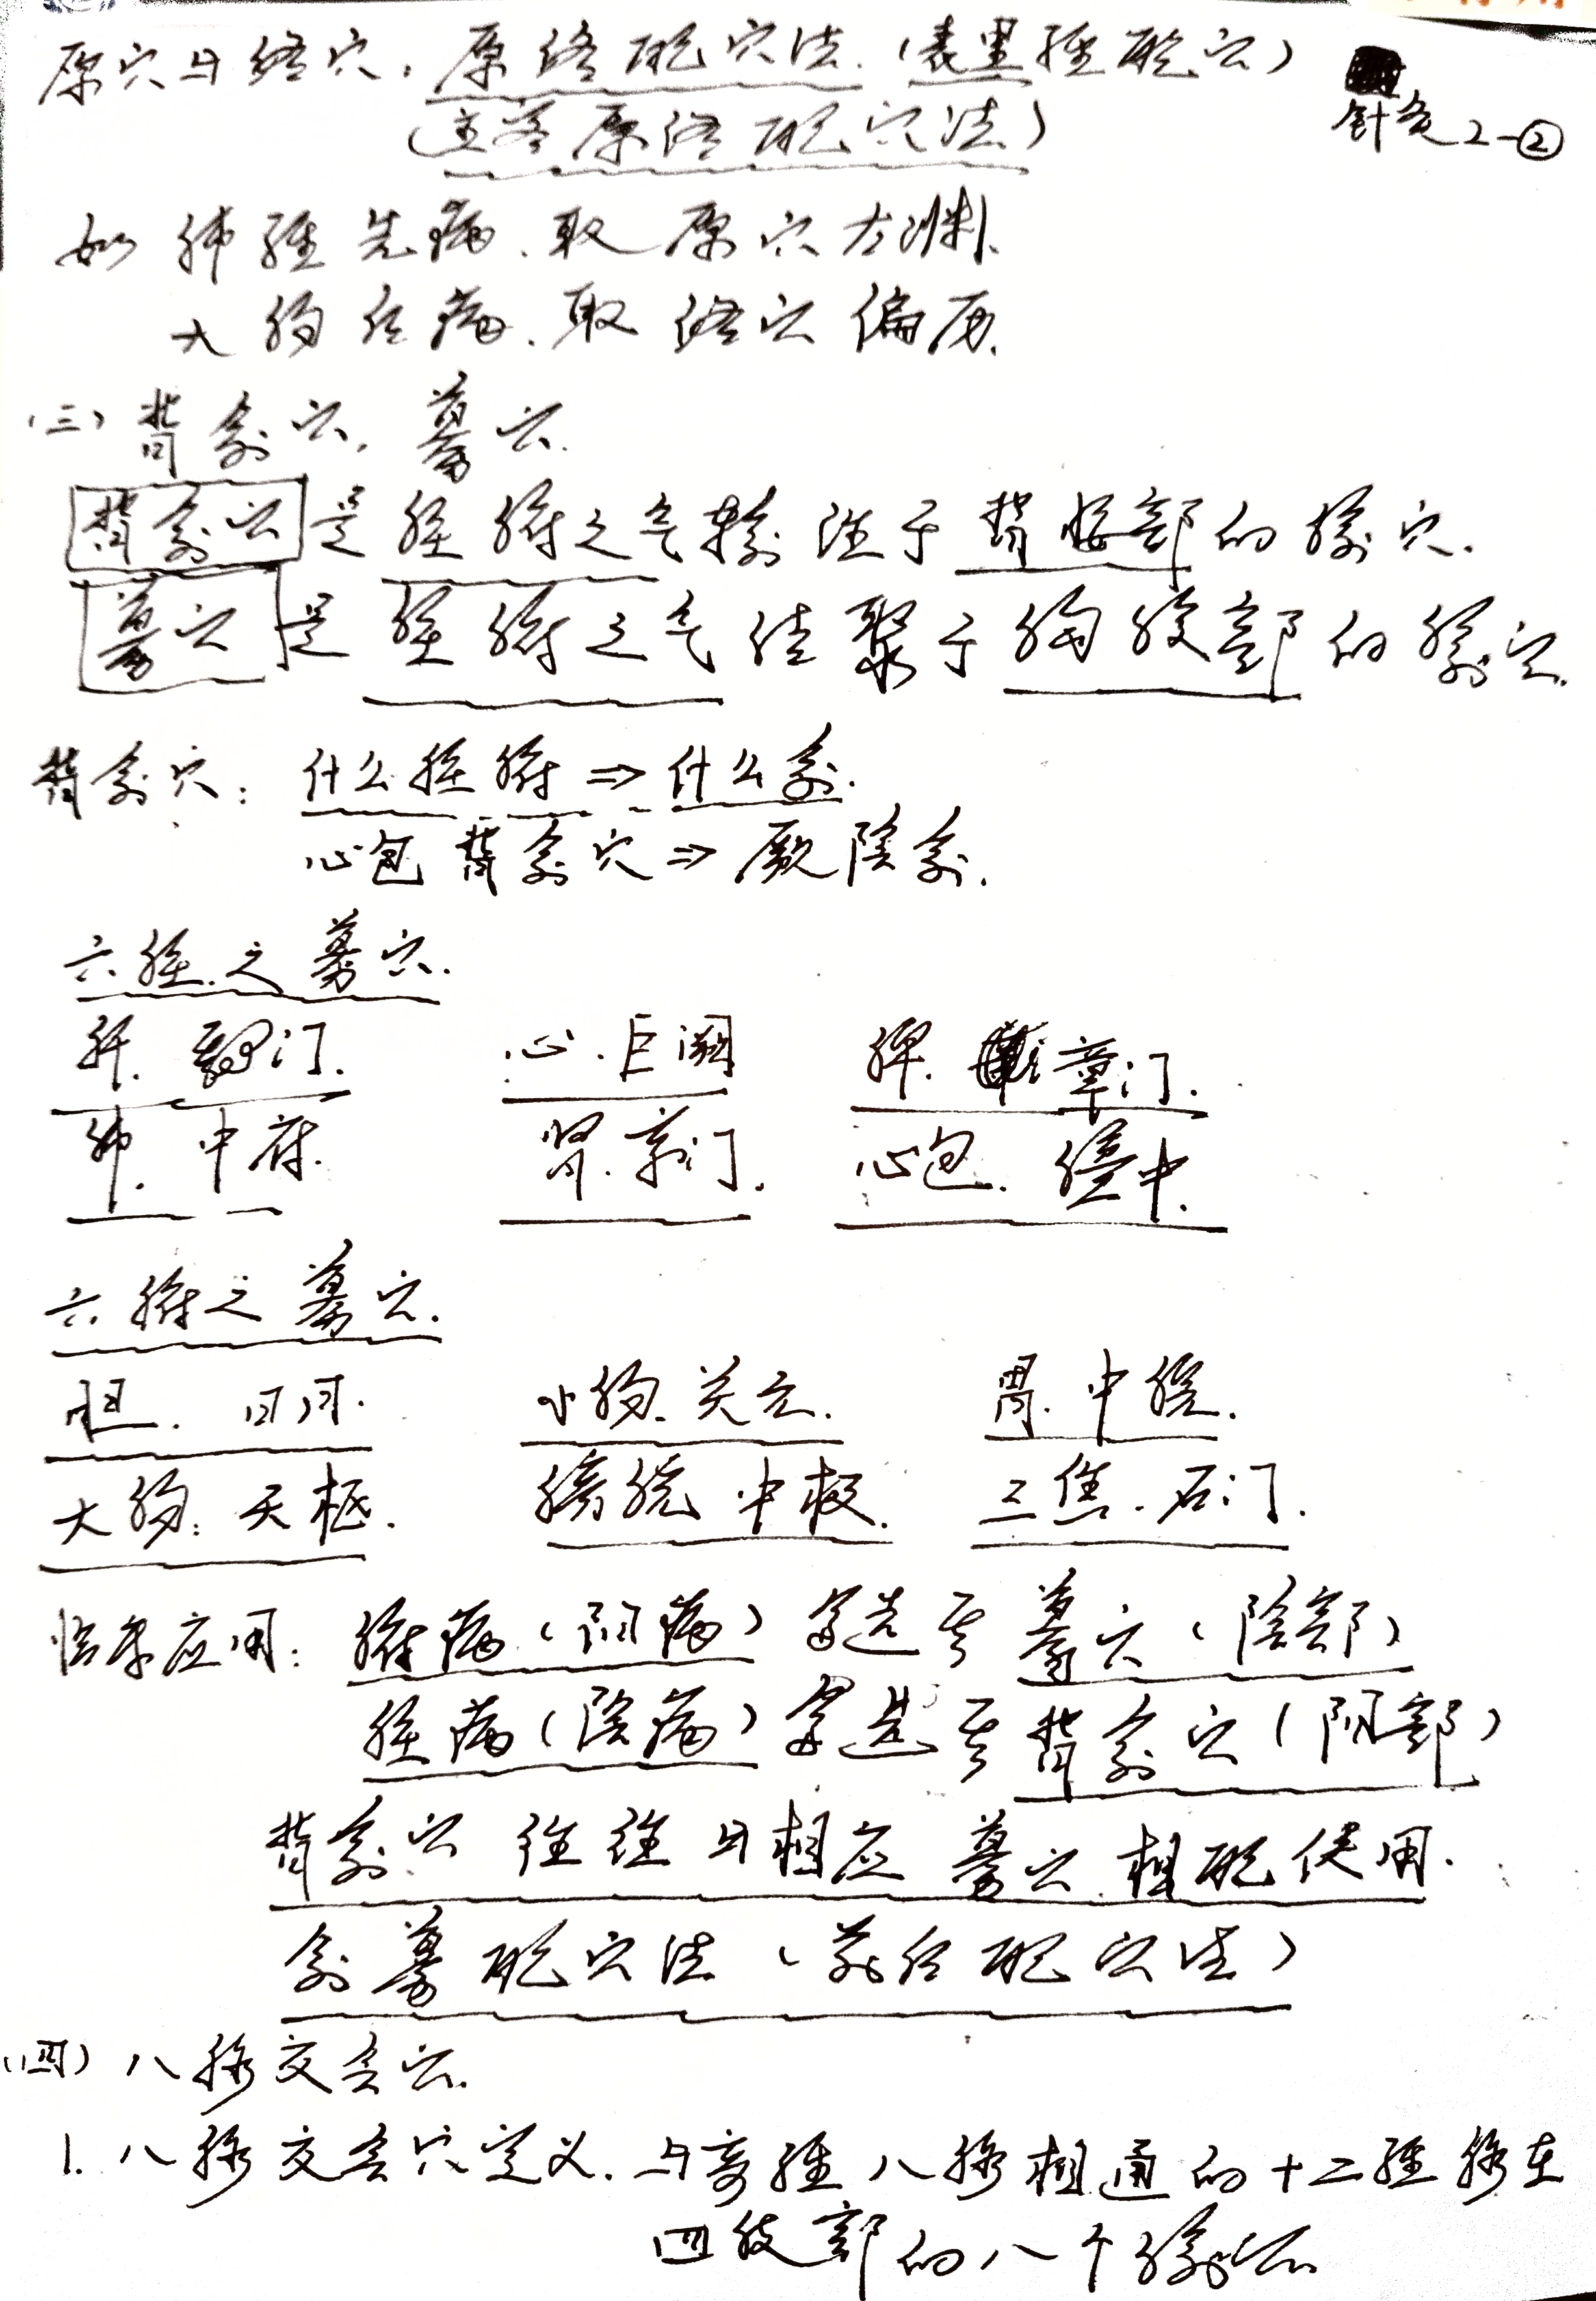 原穴与络穴，原络配穴法（表里经配穴）
针灸2-②
（主客原络配穴法）
如肺经先病，取原穴太渊，
大肠后病，取络穴偏历。
（三）背俞穴，募穴
背俞穴是脏腑之气输注于背腰部的腧穴。
募穴是脏腑之气结聚于胸腹部的腧穴。
背俞穴：什么脏腑⇒什么俞。
心包背俞穴⇒厥阴俞。
六脏之募穴.
肝.期门. 心.巨阙 脾.章门.
肺.中府. 肾.京门. 心包.膻中.
六腑之募穴.
胆.日月. 小肠.关元. 胃.中脘.
大肠：天枢. 膀胱 中极. 三焦.石门.
临床应用：腑病（阳病）多选其募穴（阴部）
脏病（阴病）多选其背俞穴（阳部）
背俞穴往往与相应募穴相配使用.
俞募配穴法（前后配穴法）
（四）八脉交会穴.
1. 八脉交会穴定义.与奇经八脉相通的十二经脉在
四肢部的八个腧穴